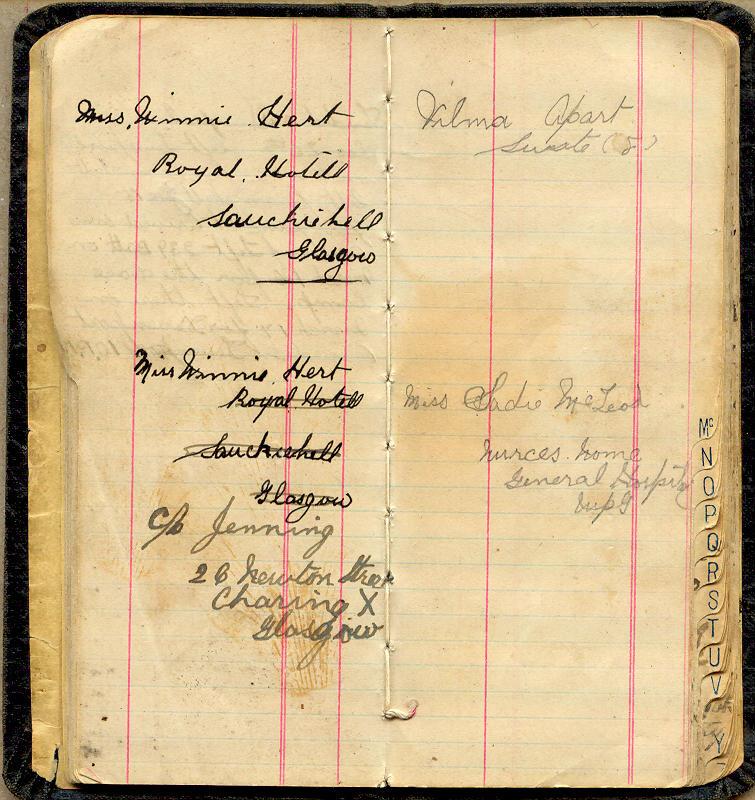 Miss. Winnie Hert
Royal. Hotell
Sauckiehell
Glasgow
Miss Winnie. Hert
Royal Hotell
Sauckiehell
Glasgow
c/o Jenning
26 Newton Stree
Charing X
Glasgow
Wilma Apart
Suete (8)
Miss Sadie McLeod
Nurces home
General Hospity
Wpg
Mc
N
O
P
Q
R
S
T
U
V
Y